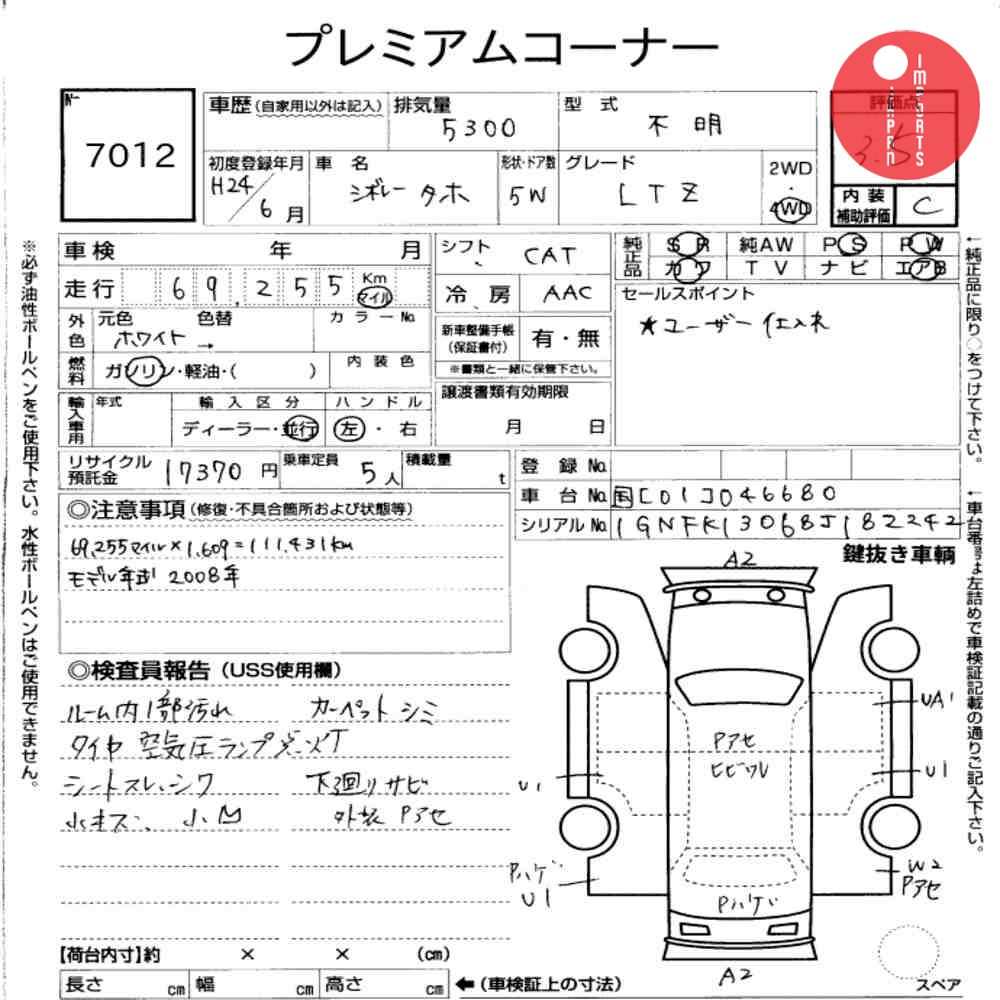 プレミアムコーナー
IMPORTS
JAPAN
№
7012
車歴（自家用以外は記入）
排気量
5300
型式
不明
評価点
3.5
初度登録年月
H24/6月
車名
シボレー タホ
形状・ドア数
5W
グレード
LTZ
2WD・4WD
内装補助評価
C
車検 年 月
走行 69,255 Km マイル
シフト
CAT
冷房
AAC
純正品
SR 純AW PS PW
カワ TV ナビ エアB
セールスポイント
★ユーザー仕入れ
外色
元色 色替
ホワイト →
カラーNo
新車整備手帳
（保証書付）
有・無
※書類と一緒に保管下さい。
燃料
ガソリン・軽油・( )
内装色
譲渡書類有効期限
月 日
輸入車用
年式
輸入区分
ディーラー・並行
ハンドル
左・右
リサイクル預託金
17370円
乗車定員
5人
積載量
t
登録No
車台No
国[01]046680
シリアルNo
1GNFK13068J182242
◎注意事項（修復・不具合箇所および状態等）
69,255マイル×1.609=111.431km
モデル年式 2008年
鍵抜き車輌
◎検査員報告（USS使用欄）
ルーム内1部汚れ カーペットシミ
タイヤ空気圧ランプ
シートスレ、シワ 下廻りサビ
小キズ、小凹 外装Pアセ
A2
UA1
Pアセ
ヒビワレ
U1
U1
Pハゲ
U1
W2
Pアセ
Pハゲ
A2
スペア
【荷台内寸】約 × × (cm)
長さ cm 幅 cm 高さ cm
←（車検証上の寸法）
※必ず油性ボールペンをご使用下さい。水性ボールペンはご使用できません。
←純正品に限り○をつけて下さい。
←車台番号は左詰めで車検証記載の通りご記入下さい。